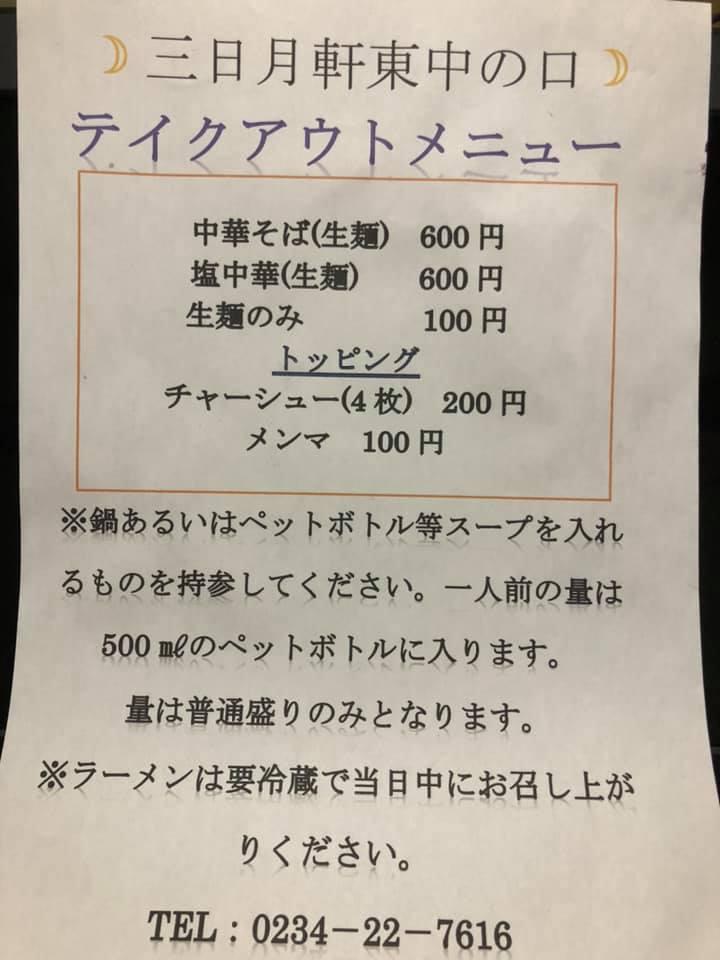 三日月軒東中の口
テイクアウトメニュー
中華そば(生麺) 600円
塩中華(生麺) 600円
生麺のみ 100円
トッピング
チャーシュー(4枚) 200円
メンマ 100円
※鍋あるいはペットボトル等スープを入れ
るものを持参してください。一人前の量は
500㎖のペットボトルに入ります。
量は普通盛りのみとなります。
※ラーメンは要冷蔵で当日中にお召し上が
りください。
TEL：0234－22－7616